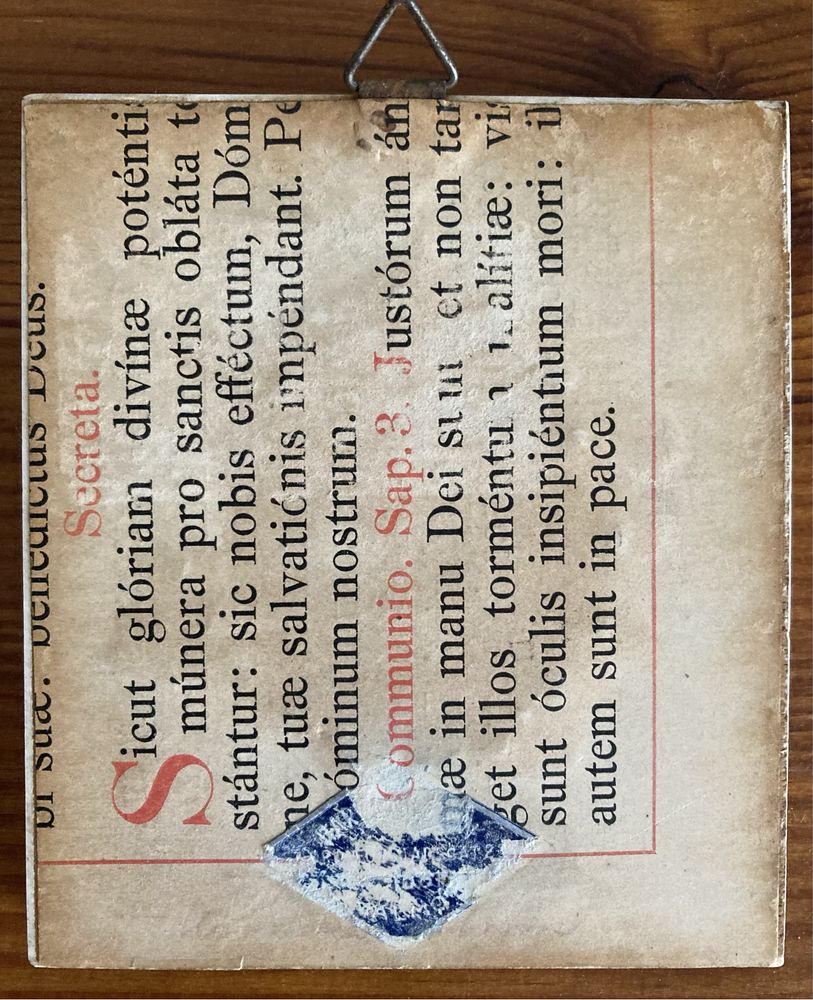 bi suæ: benedictus Deus.
Secreta.
Sicut glóriam divínæ poténti
múnera pro sanctis obláta te
stántur: sic nobis efféctum, Dóm
ne, tuæ salvatiónis impéndant. Pe
óminum nostrum.
Communio. Sap. 3. Justórum án
mæ in manu Dei sunt et non tan
get illos torméntu malítiæ: vis
sunt óculis insipiéntium mori: il
autem sunt in pace.